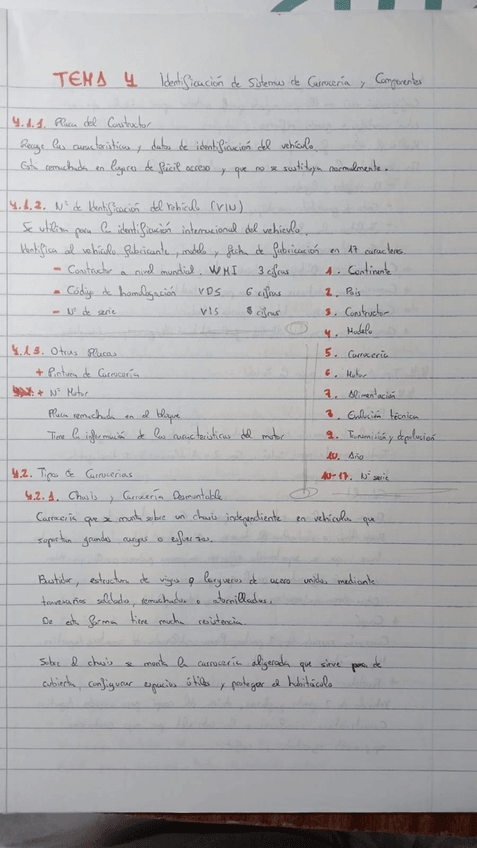 TEMA 4 Identificación de Sistemas de Carrocería y Componentes
4.1.1. Placa del Constructor
Recoge las características y datos de identificación del vehículo.
Está remachada en lugares de fácil acceso y que no se sustituya normalmente.
4.1.2. Nº de Identificación del Vehículo (VIN)
Se utiliza para la identificación internacional del vehículo.
Identifica al vehículo, fabricante, modelo y fecha de fabricación en 17 caracteres.
- Constructor a nivel mundial. WMI 3 cifras
- Código de homologación VDS 6 cifras
- Nº de serie VIS 8 cifras
1. Continente
2. País
3. Constructor
4. Modelo
5. Carrocería
6. Motor
7. Alimentación
8. Evolución técnica
9. Transmisión y
10. Año
10-17. Nº serie
4.1.3. Otras Placas
+ Pintura de Carrocería
+ Nº Motor
Placa remachada en el bloque
Tiene la información de las características del motor
4.2. Tipos de Carrocerías
4.2.1. Chasis y Carrocería Desmontable
Carrocería que se monta sobre un chasis independiente en vehículos que
soportan grandes cargas o esfuerzos.
Bastidor, estructura de vigas o largueros de acero unidos mediante
travesaños soldados, remachados o atornillados.
De esta forma tiene mucha resistencia.
Sobre el chasis se monta la carrocería aligerada que sirve de
cubierta, configurar espacios útiles y proteger el habitáculo